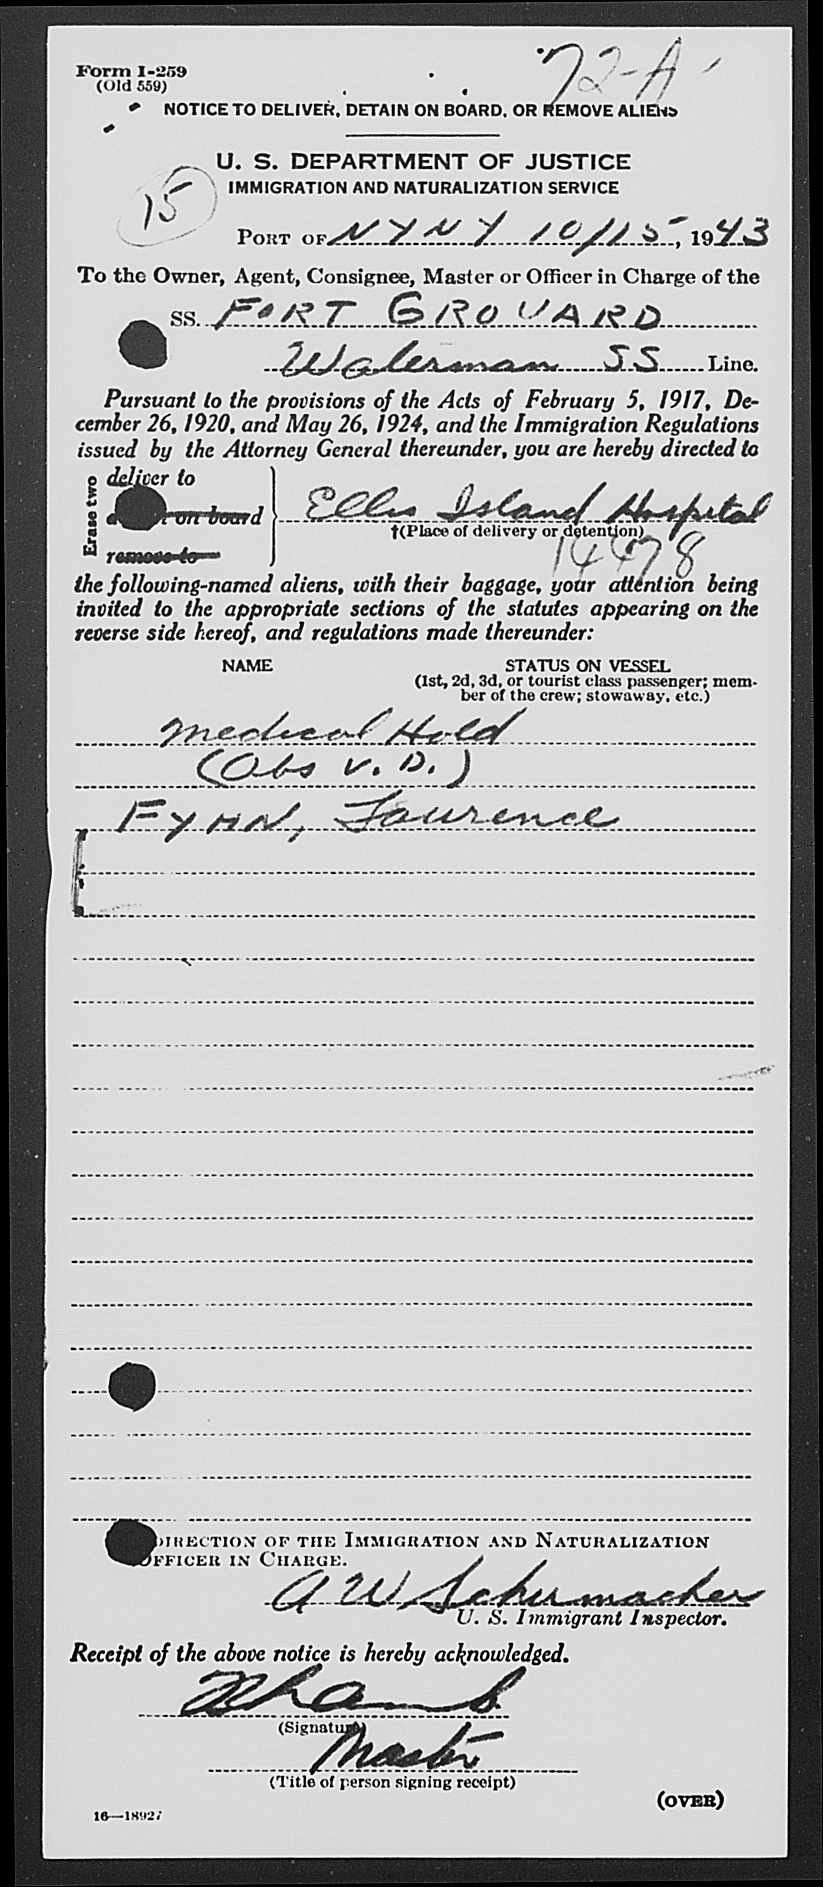 Form I-259
(Old 559)
72-A
NOTICE TO DELIVER, DETAIN ON BOARD, OR REMOVE ALIENS
U. S. DEPARTMENT OF JUSTICE
IMMIGRATION AND NATURALIZATION SERVICE
15
PORT OF NY NY 10/15, 1943
To the Owner, Agent, Consignee, Master or Officer in Charge of the
SS. FORT GROUARD
Waterman SS Line.
Pursuant to the provisions of the Acts of February 5, 1917, De-
cember 26, 1920, and May 26, 1924, and the Immigration Regulations
issued by the Attorney General thereunder, you are hereby directed to
Erase two
deliver to
on board
remove to
Ellis Island Hospital
†(Place of delivery or detention)
14478
the following-named aliens, with their baggage, your attention being
invited to the appropriate sections of the statutes appearing on the
reverse side hereof, and regulations made thereunder:
NAME STATUS ON VESSEL
(1st, 2d, 3d, or tourist class passenger; mem-
ber of the crew; stowaway, etc.)
Medical Hold
(Obs V. D.)
FYNN, Laurence
DIRECTION OF THE IMMIGRATION AND NATURALIZATION
OFFICER IN CHARGE.
A W Schumacher
U. S. Immigrant Inspector.
Receipt of the above notice is hereby acknowledged.
(Signature)
Master
(Title of person signing receipt)
(OVER)
16—18927